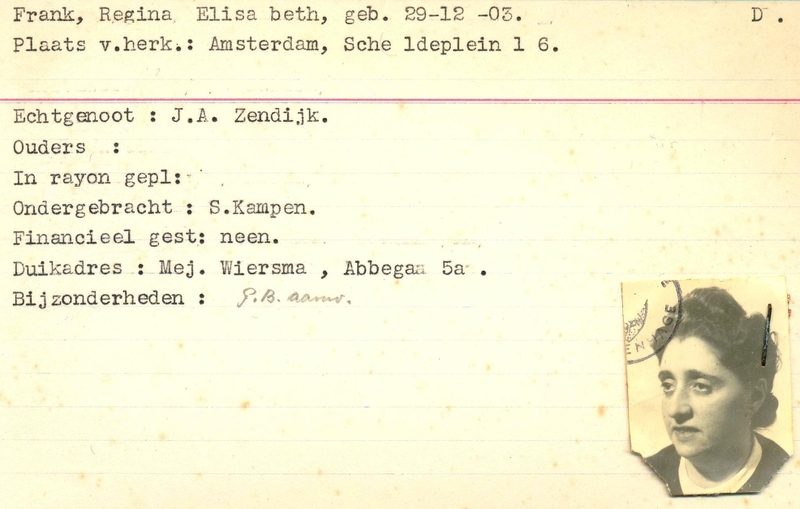 Frank, Regina Elisa beth, geb. 29-12 -03. D .
Plaats v.herk.: Amsterdam, Sche ldeplein 1 6.
Echtgenoot : J.A. Zendijk.
Ouders :
In rayon gepl:
Ondergebracht : S.Kampen.
Financieel gest: neen.
Duikadres : Mej. Wiersma , Abbegaa 5a .
Bijzonderheden : P.B. aanw.